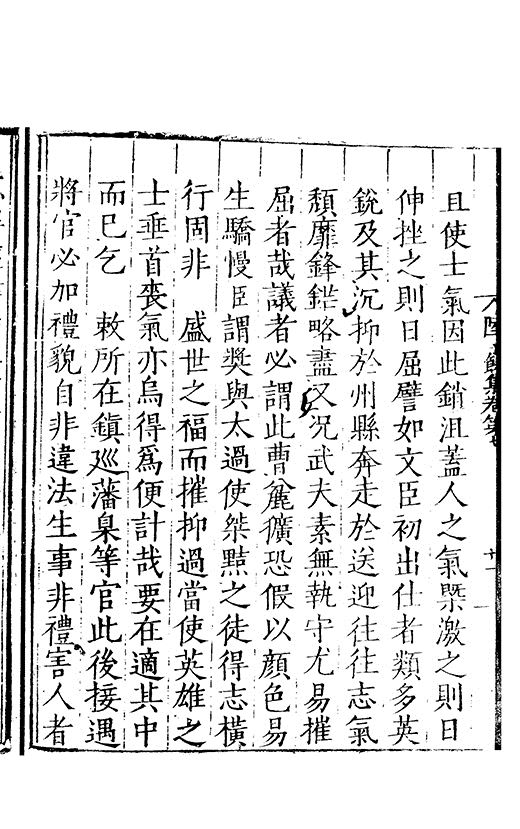 且使士氣因此銷沮蓋人之氣槩激之則日
伸挫之則日屈譬如文臣初出仕者類多英
銳及其沉抑於州縣奔走於送迎往往志氣
頹靡鋒鋩略盡又况武夫素無執守尤易摧
屈者哉議者必謂此曹麄獷恐假以顔色易
生驕慢臣謂奬與太過使桀黠之徒得志橫
行固非　盛世之福而摧抑過當使英雄之
士垂首喪氣亦烏得爲便計哉要在適其中
而已乞　敕所在鎮廵藩臬等官此後接遇
將官必加禮貌自非違法生事非禮害人者